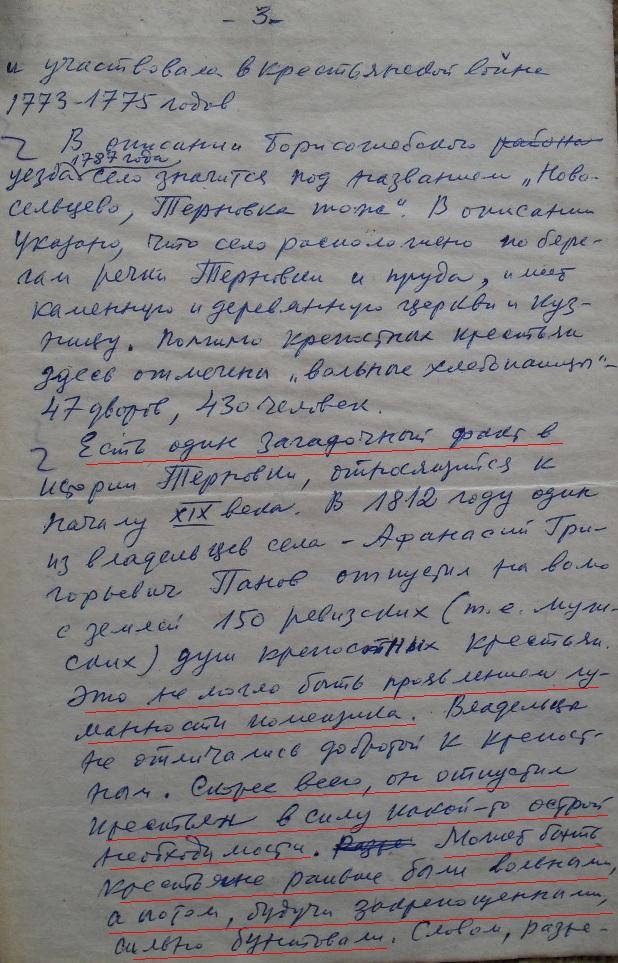 - 3 -
и участвовала в крестьянской войне
1773-1775 годов
В описании Борисоглебского района
1787 года
уезда село значится под названием „Ново-
сельцево, Терновка тож“. В описании
указано, что село расположено по бере-
гам речки Терновки и пруда, имеет
каменную и деревянную церкви и куз-
ницу. Помимо крепостных крестьян
здесь отмечены „вольные хлебопашцы“ -
47 дворов, 430 человек.
Есть один загадочный факт в
истории Терновки, относящийся к
началу XIX века. В 1812 году один
из владельцев села - Афанасий Гри-
горьевич Панов отпустил на волю
с землей 150 ревизских (т.е. муж-
ских) душ крепостных крестьян.
Это не могло быть проявлением гу-
манности помещика. Владельцы
не отличались добротой к крепост-
ным. Скорее всего, он отпустил
крестьян в силу какой-то острой
необходимости. Разве Может быть
крестьяне раньше были вольными,
а потом, будучи закрепощенными,
сильно бунтовали. Словом, разне-